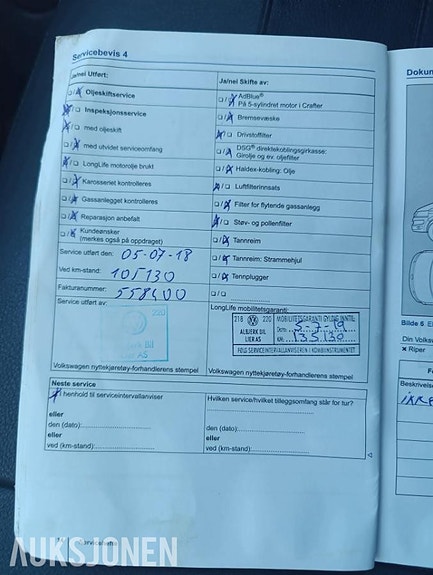 Servicebevis 4
Ja/nei Utført:
Ja/nei Skifte av:
Oljeskiftservice
AdBlue®
På 5-sylindret motor i Crafter
Inspeksjonsservice
Bremsevæske
med oljeskift
Drivstoffilter
med utvidet serviceomfang
DSG® direktekoblingsgirkasse:
Girolje og ev. oljefilter
LongLife motorolje brukt
Haldex-kobling: Olje
Karosseriet kontrolleres
Luftfilterinnsats
Gassanlegget kontrolleres
Filter for flytende gassanlegg
Reparasjon anbefalt
Støv- og pollenfilter
Kundeønsker
(merkes også på oppdraget)
Tannreim
Service utført den: 05-07-18
Tannreim: Strammehjul
Ved km-stand: 105130
Tennplugger
Fakturanummer: 558400
Service utført av:
LongLife mobilitetsgaranti:
220
218 220
ALBJERK BIL
LIER AS
MOBILITETSGARANTI GYLDIG INNTIL
Dato: 5-7-19
KM: 135.130
FØLG SERVICEINTERVALLANVISEREN I KOMBIINSTRUMENTET
Volkswagen nyttekjøretøy-forhandlerens stempel
Volkswagen nyttekjøretøy-forhandlerens stempel
Neste service
I henhold til serviceintervallanviser
Hvilken service/hvilket tilleggsomfang står for tur?
eller
den (dato):
eller
ved (km-stand):
eller
den (dato):
eller
ved (km-stand):
Dokum
Bilde 6
Din Volks
Riper
Beskrivelse
AUKSJONEN